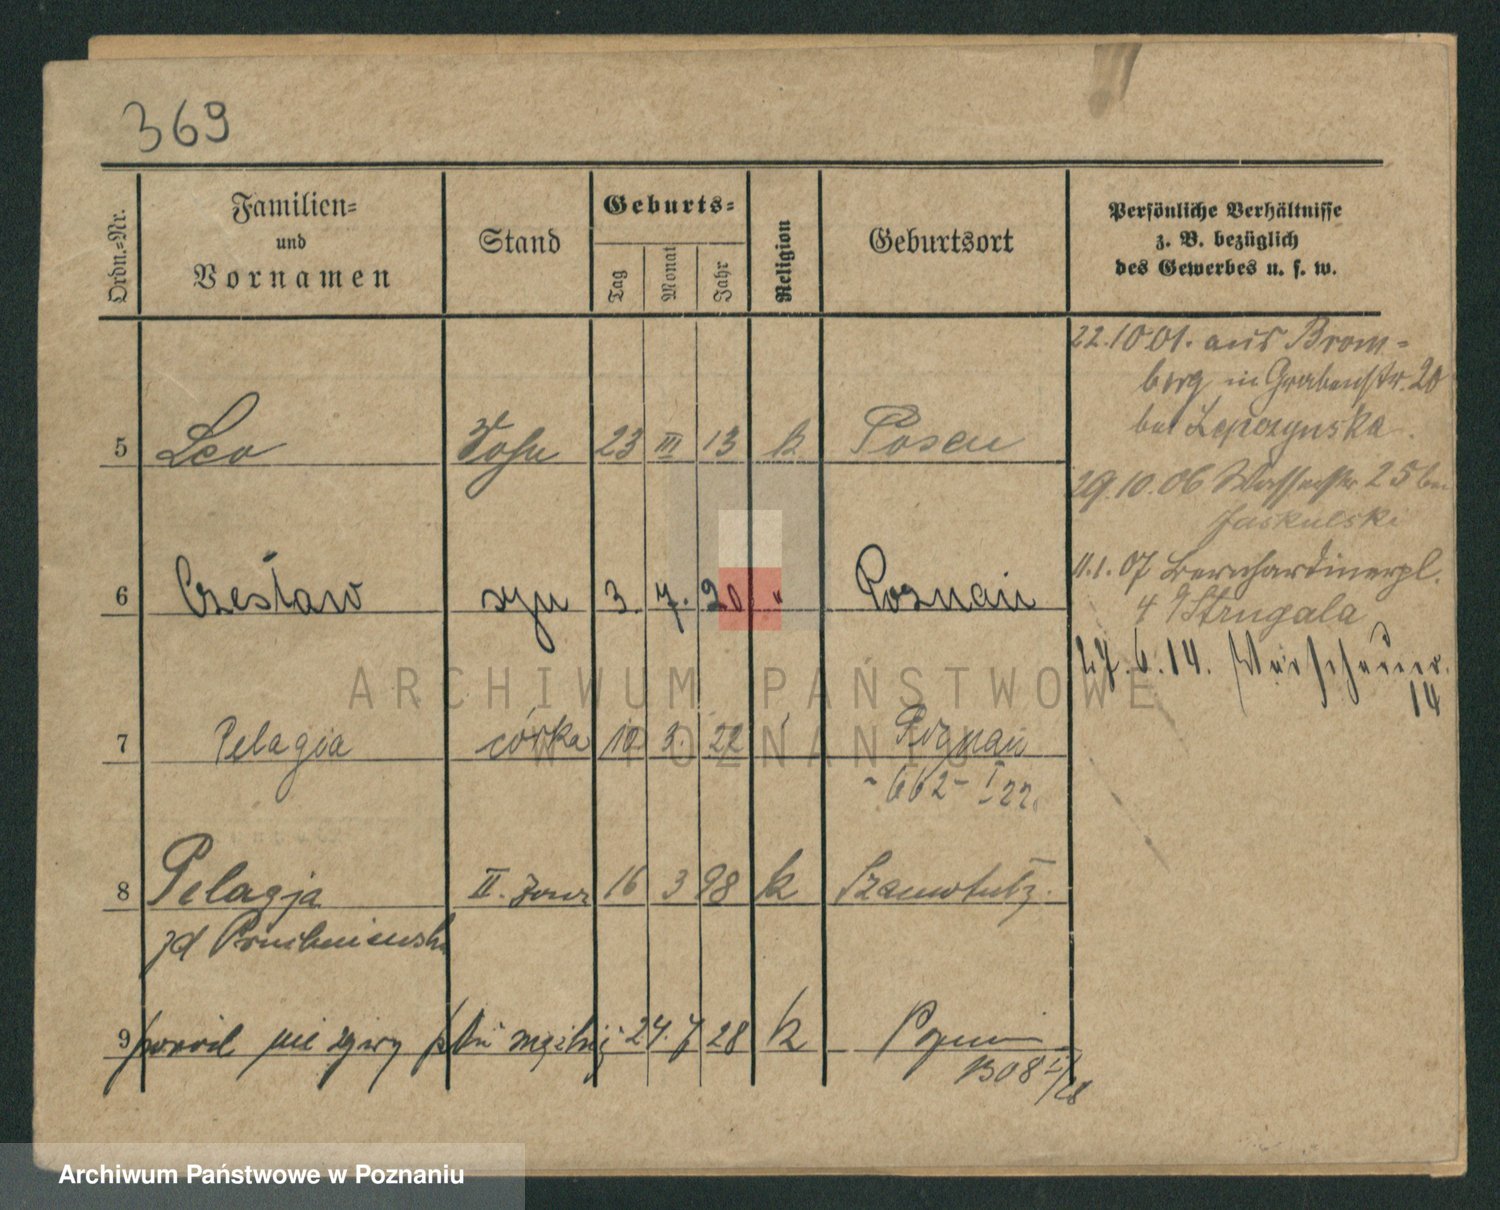 369
Ordn.=Nr.
Familien=
und
Vornamen
Stand
Geburts=
Tag
Monat
Jahr
Religion
Geburtsort
Persönliche Verhältnisse
z. B. bezüglich
des Gewerbes u. s. w.
22.10.01. aus Brom=
berg in Grabenstr. 20
bei
5 Leo Sohn 23 III 13 k Posen
29.10.06 Wasserstr 25 bei
Jaskulski
11.1.07 Bernhardinerpl.
4 b/Strugala
6 Czesław syn 3. 7. 20 " Poznań
27.6.14. Warschauer.
14
ARCHIWUM PAŃSTWOWE
W POZNANIU
7 Pelagia córka 10 3. 22 Poznań
- 662 - I 22.
8 Pelagja II. żona 16 3 98 k Szamotuły.
zd
9 poród nie żywy płci męzkiej 24. 7 28 k Poznań
1308 II/28
Archiwum Państwowe w Poznaniu